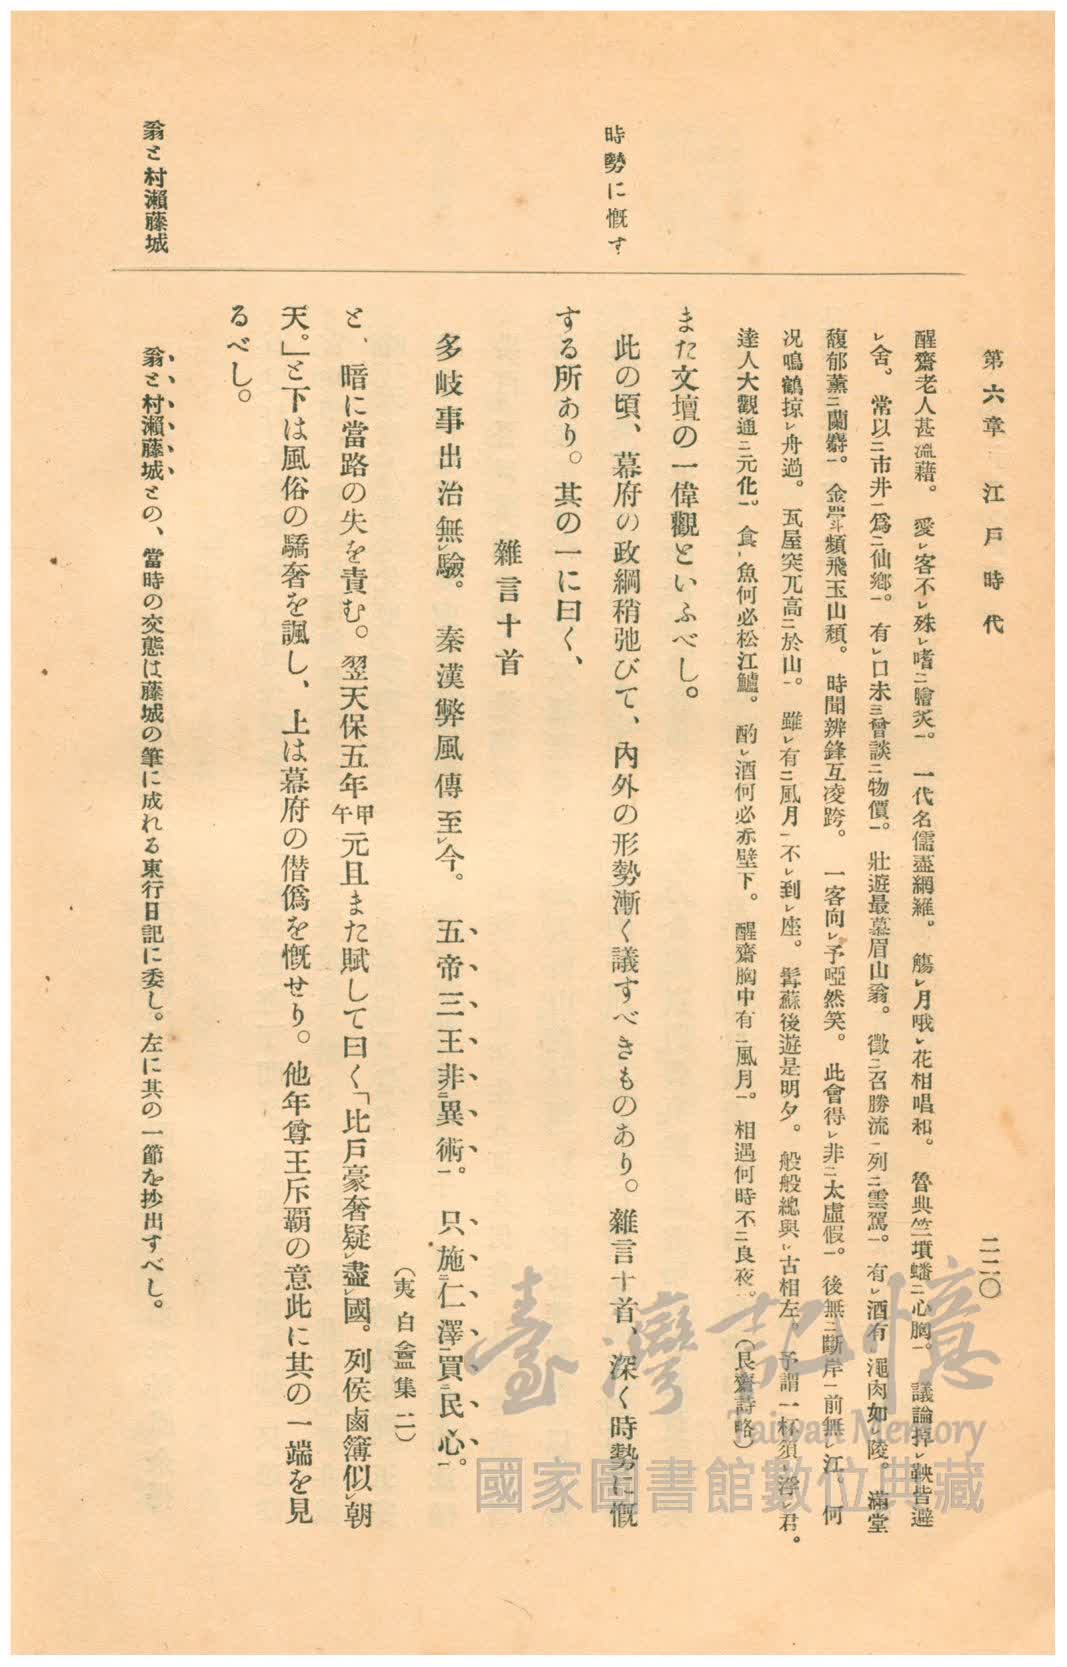 第六章 江戸時代
二二〇
醒齋老人甚溫藉。愛㆑客不㆑殊㆑嗜㆓膾炙㆒。一代名儒盡網羅。觴㆑月哦㆑花相唱和。魯典竺墳蟠㆓心胸㆒。議論掉㆑鞅皆避
㆑舍。常以㆓市井㆒爲㆓仙鄕㆒。有㆑口未㆔曾談㆓物價㆒。壯遊最慕眉山翁。徵㆓召勝流㆒列㆓雲駕㆒。有㆑酒有㆑澠肉如㆑陵。滿堂
馥郁薰㆓蘭麝㆒。金斝頻飛玉山頽。時聞辨鋒互凌跨。一客向㆑予啞然笑。此會得㆑非㆓太虛假㆒。後無㆓斷岸㆒前無㆑江。何
况鳴鶴掠㆑舟過。瓦屋突兀高㆓於山㆒。雖㆑有㆓風月㆒不㆑到㆑座。髯蘇後遊是明夕。般般總與㆑古相左。予謂一杯須㆑浮㆑君。
達人大觀通㆓元化㆒。食㆑魚何必松江鱸。酌㆑酒何必赤壁下。醒齋胸中有㆓風月㆒。相遇何時不㆓良夜㆒。（艮齋詩略）
また文壇の一偉觀といふべし。
時勢に慨す
此の頃、幕府の政綱稍弛びて、內外の形勢漸く議すべきものあり。雜言十首、深く時勢に慨
する所あり。其の一に曰く、
雜言十首
多岐事出治無㆑驗。秦漢弊風傳至㆑今。五帝三王非㆓異術㆒。只施㆓仁澤㆒買㆓民心㆒。
（夷白盦集二）
と、暗に當路の失を責む。翌天保五年甲午元旦また賦して曰く「比戶豪奢疑㆑盡㆑國。列侯鹵簿似㆑朝
天。」と下は風俗の驕奢を諷し、上は幕府の僭僞を慨せり。他年尊王斥覇の意此に其の一端を見
るべし。
翁と村瀨藤城
翁と村瀨藤城との、當時の交態は藤城の筆に成れる東行日記に委し。左に其の一節を抄出すべし。
臺灣記憶
Taiwan Memory
國家圖書館數位典藏